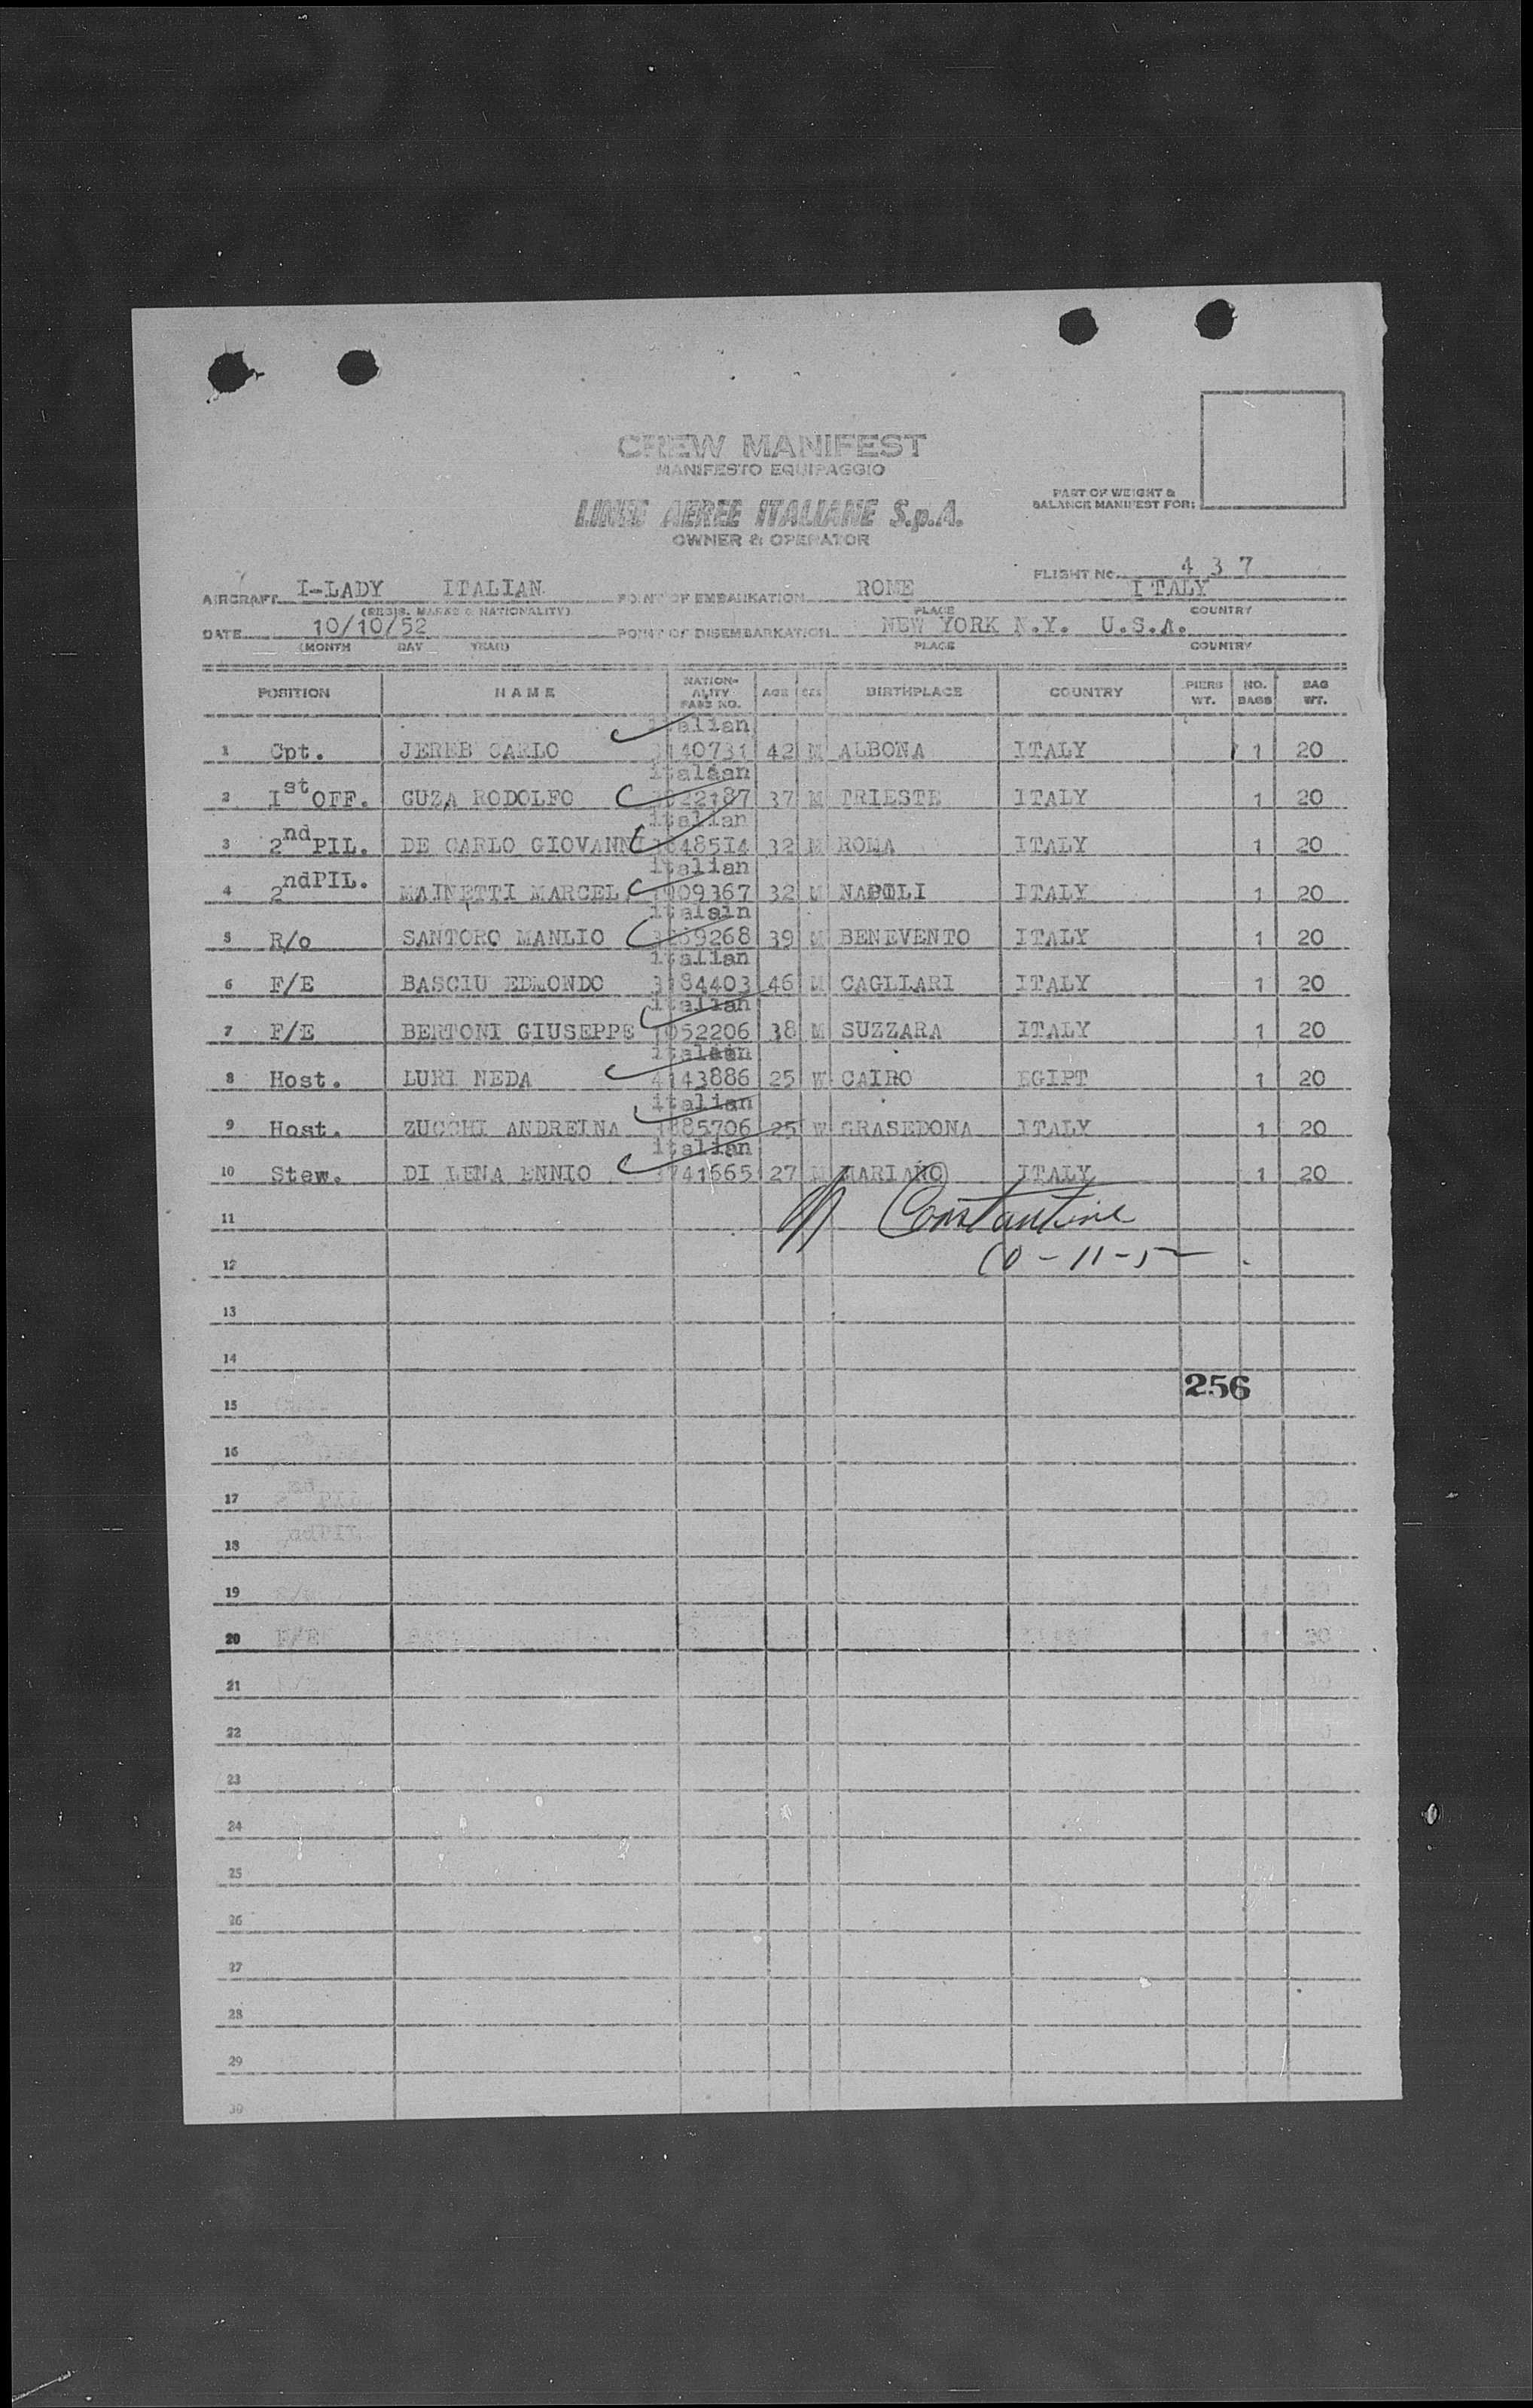 CREW MANIFEST
MANIFESTO EQUIPAGGIO
LINEE AEREE ITALIANE S.p.A.
OWNER & OPERATOR
PART OF WEIGHT &
BALANCE MANIFEST FOR:
FLIGHT NO. 4 3 7
AIRCRAFT I-LADY ITALIAN POINT OF EMBARKATION ROME ITALY
(REGIS. MARKS & NATIONALITY) PLACE COUNTRY
DATE 10/10/52 POINT OF DISEMBARKATION NEW YORK N.Y. U.S.A.
(MONTH DAY YEAR) PLACE COUNTRY
POSITION NAME NATION-ALITY PASS NO. AGE SEX BIRTHPLACE COUNTRY PIERS WT. NO. BAGS BAG WT.
italian
1 Cpt. JEREB CARLO 3140731 42 M ALBONA ITALY 1 20
italéan
2 Ist OFF. GUZA RODOLFO 37 M TRIESTE ITALY 1 20
italian
3 2nd PIL. DE CARLO GIOVANNI 32 M ROMA ITALY 1 20
italian
4 2ndPIL. MAINETTI MARCEL 32 M NAPOLI ITALY 1 20
italain
5 R/o SANTORO MANLIO 39 M BENEVENTO ITALY 1 20
italian
6 F/E BASCIU EDMONDO 3184403 46 M CAGLIARI ITALY 1 20
italian
7 F/E BERTONI GIUSEPPE 1052206 38 M SUZZARA ITALY 1 20
8 Host. LURI NEDA 4143886 25 W CAIRO EGIPT 1 20
italian
9 Host. ZUCCHI ANDREINA 25 W GRASEDONA ITALY 1 20
italian
10 Stew. DI LENA ENNIO 3741665 27 M MARIANO ITALY 1 20
11 Constantine
12 10-11-52
13
14
256
15
16
17
18
19
20 F/E 20
21
22
23
24
25
26
27
28
29
30